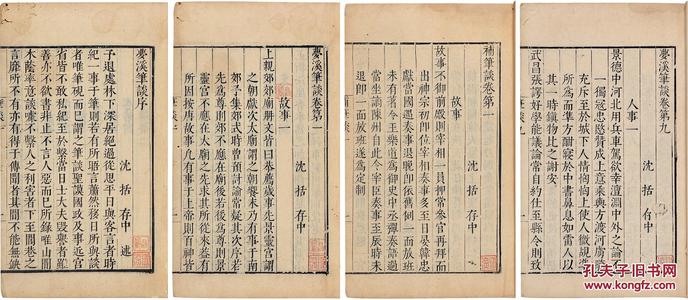 夢溪筆談序
沈括存中述
予退處林下深居絕過從思平日與客言者時
紀一事于筆則若有所晤言蕭然移日所與談
者唯筆硯而已謂之筆談聖謨國政及事近宮
省皆不敢私紀至於繫當日士大夫毀譽者雖
善亦不欲書非止不言人惡而已所錄唯山間
木蔭率意談噱不繫人之利害者下至閭巷之
言靡所不有亦有得于傳聞者其間不能無缺
夢溪筆談卷第一
沈括存中
故事一
上親郊郊廟冊文皆曰恭薦歲事先景靈宮謂
之朝獻次太廟謂之朝饗末乃有事于南
郊予集郊式時曾預討論常疑其次序若
先為尊則郊不應在廟後若後為尊則景
靈宮不應在太廟之先求其所從來蓋有
所因按唐故事凡有事于上帝則百神皆
補筆談卷第一
沈括存中
故事
故事不御前殿則宰相一員押常參官再拜而
出神宗初即位宰相奏事多至日晏韓忠
獻當國遇奏事退晚即依舊例一面放班
未有著令王樂道為御史中丞彈奏語過
當坐謫陳州自此令宰臣奏事至辰時未
退即一面放班遂為定制
夢溪筆談卷第九
沈括存中
人事一
景德中河北用兵車駕欲幸澶淵中外之論不
一獨寇忠愍贊成上意乘輿方渡河虜騎
充斥至於城下人情恟恟上使人微覘準
所為而準方酣寢於中書鼻息如雷人以
其一時鎮物比之謝安
武昌張諤好學能議論常自約仕至縣令則致
孔夫子旧书网